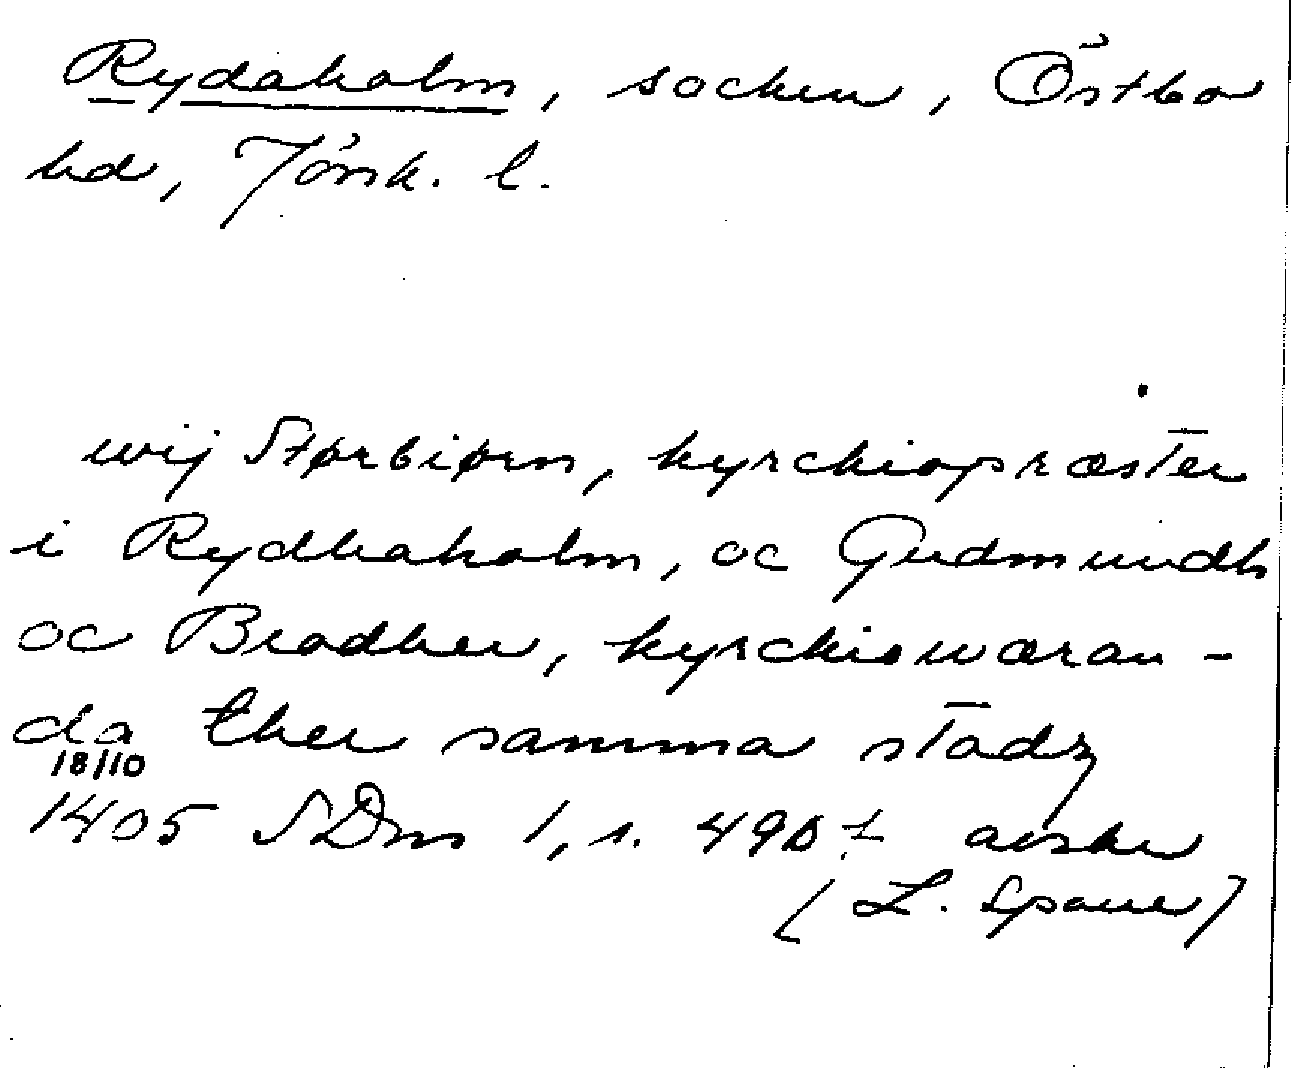 Rydaholm, socken, Östbo
hd, Jönk. l.
wij Størbiørn, kyrchiopræster
i Rydhaholm, oc Gudmundh
oc Brodher, kyrchiowæran-
da ther samma stadz
18/10
1405 SDns 1, s. 490 avskr
[L. Spaue]